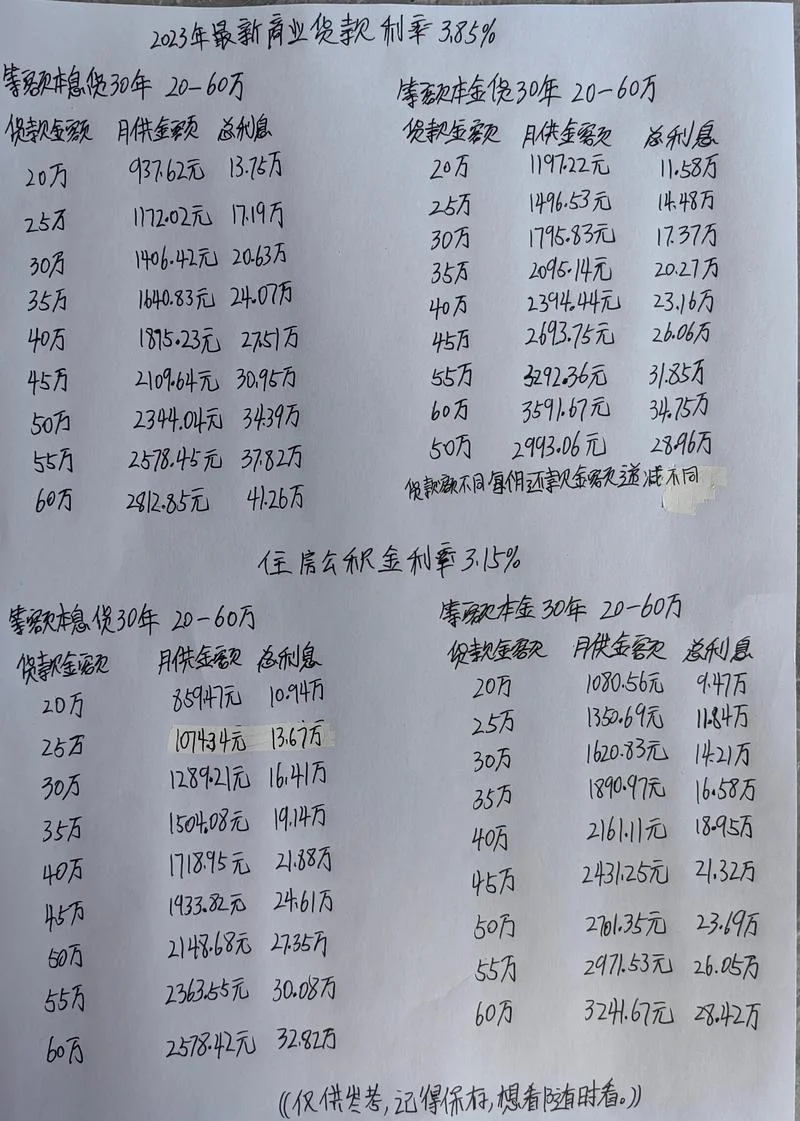 2023年最新商业贷款利率3.85%
等额本息贷30年 20-60万
贷款金额 月供金额 总利息
20万 937.62元 13.75万
25万 1172.02元 17.19万
30万 1406.42元 20.63万
35万 1640.83元 24.07万
40万 1875.23元 27.51万
45万 2109.64元 30.95万
50万 2344.04元 34.39万
55万 2578.45元 37.82万
60万 2812.85元 41.26万
等额本金贷30年 20-60万
贷款金额 月供金额 总利息
20万 1197.22元 11.58万
25万 1496.53元 14.48万
30万 1795.83元 17.37万
35万 2095.14元 20.27万
40万 2394.44元 23.16万
45万 2693.75元 26.06万
55万 3292.36元 31.85万
60万 3591.67元 34.75万
50万 2993.06元 28.96万
贷款额不同每月还款金额递减不同
住房公积金利率3.15%
等额本息贷30年 20-60万
贷款金额 月供金额 总利息
20万 859.47元 10.94万
25万 1074.34元 13.67万
30万 1289.21元 16.41万
35万 1504.08元 19.14万
40万 1718.95元 21.88万
45万 1933.82元 24.61万
50万 2148.68元 27.35万
55万 2363.55元 30.08万
60万 2578.42元 32.82万
等额本金30年 20-60万
贷款金额 月供金额 总利息
20万 1080.56元 9.47万
25万 1350.69元 11.84万
30万 1620.83元 14.21万
35万 1890.97元 16.58万
40万 2161.11元 18.95万
45万 2431.25元 21.32万
50万 2701.35元 23.69万
55万 2971.53元 26.05万
60万 3241.67元 28.42万
((仅供参考,记得保存,想看随时看。))